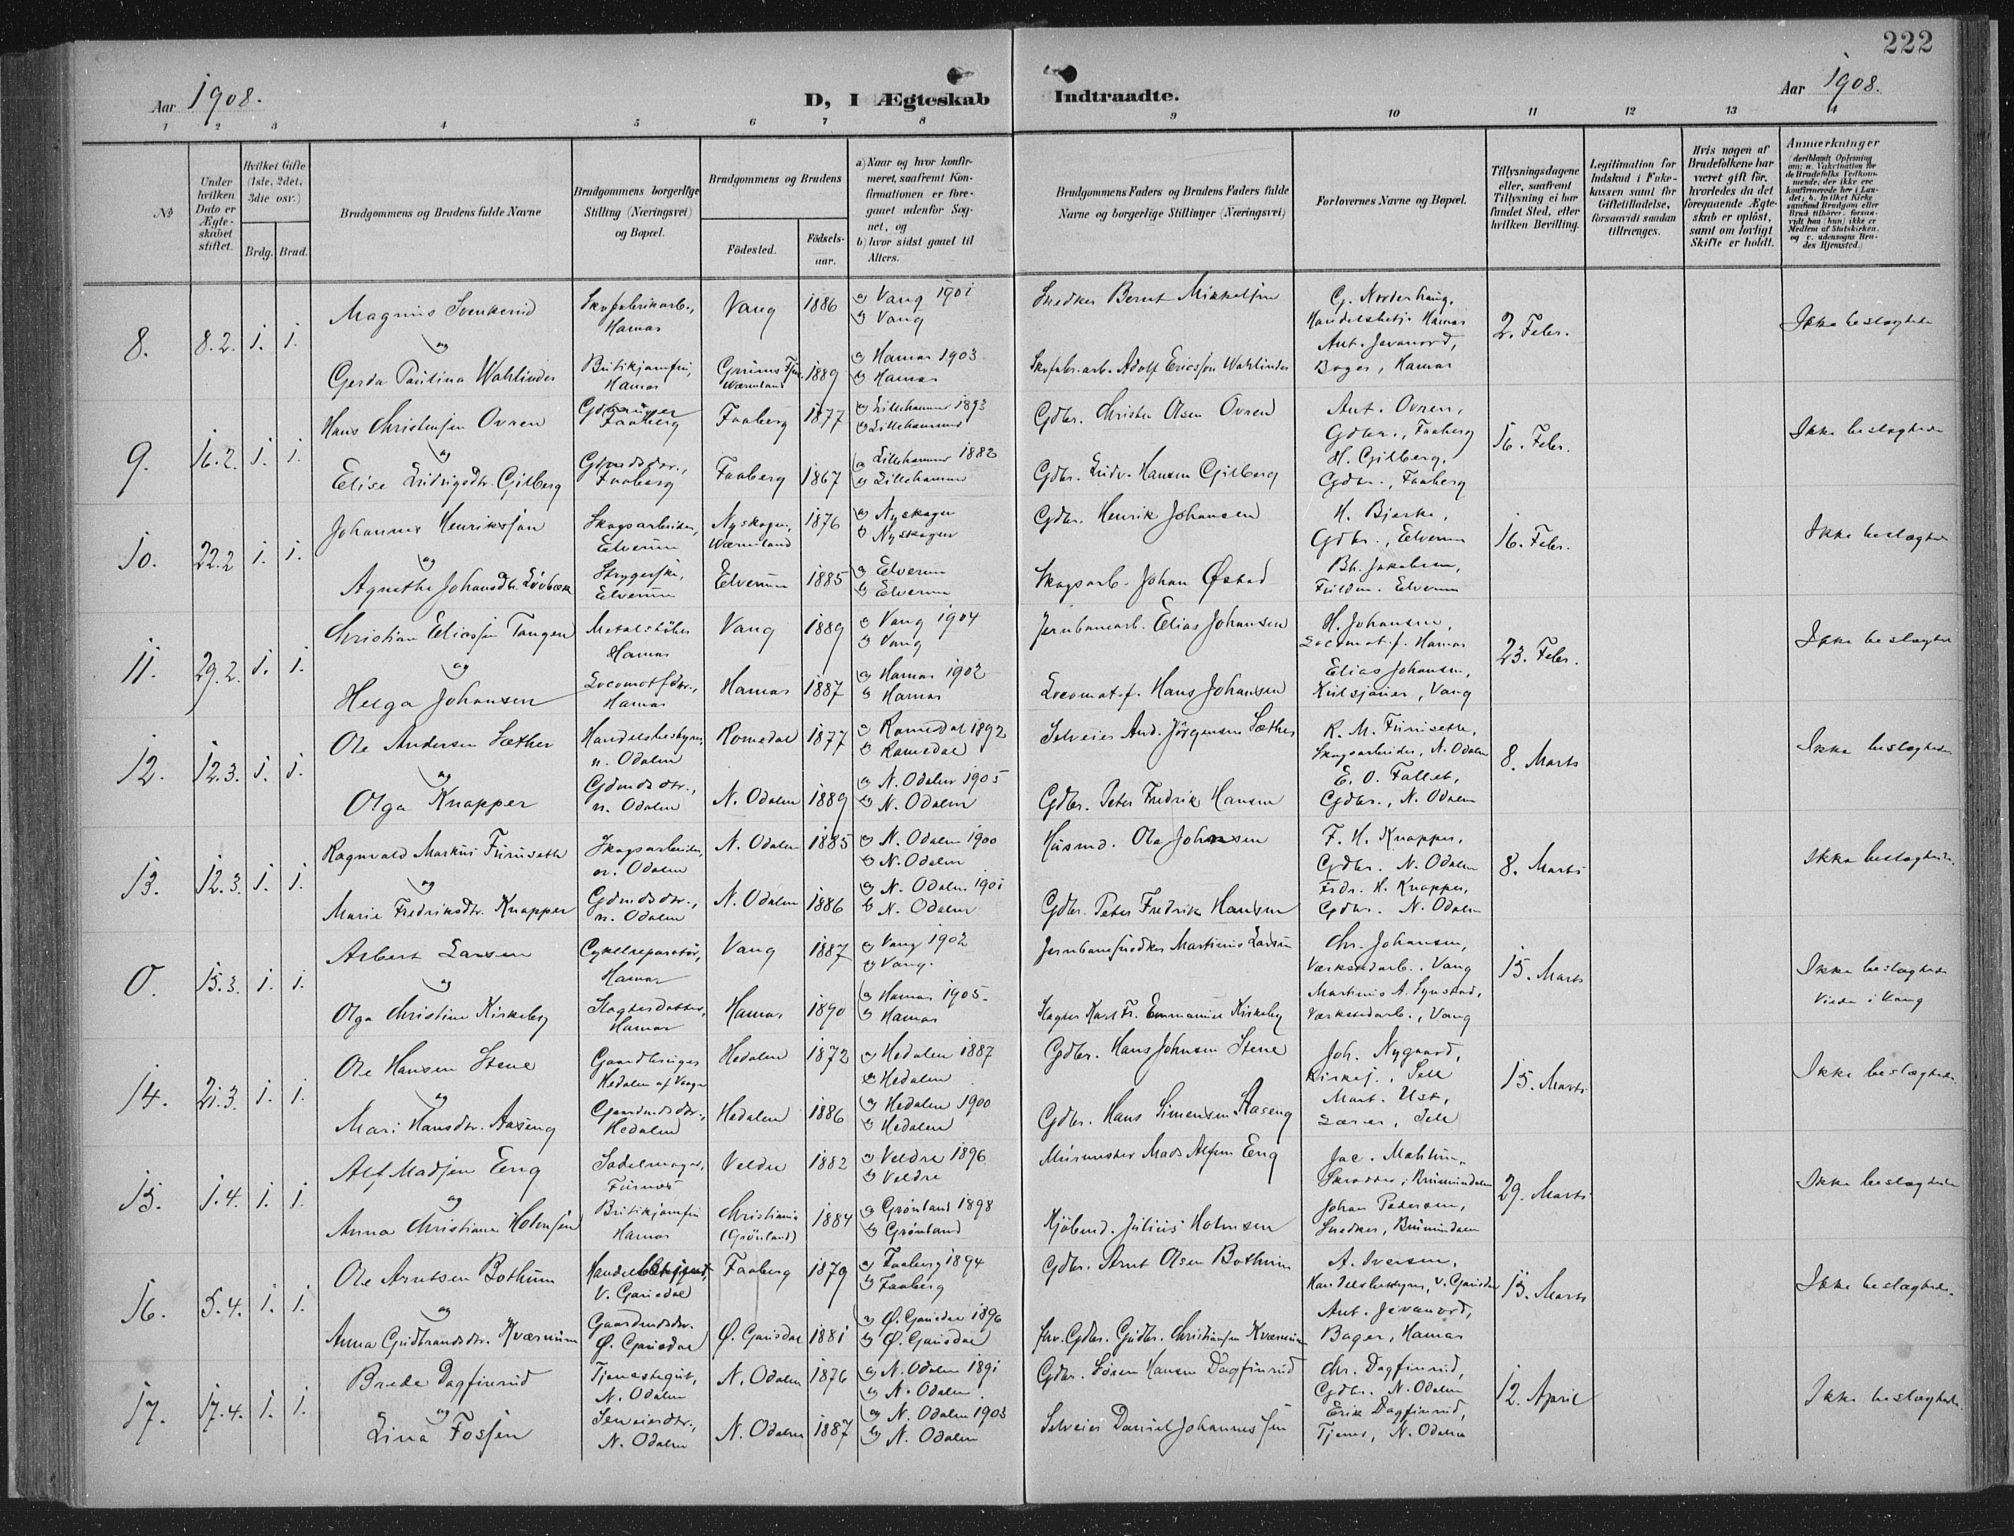 222
Aar 1908.
D, I Ægteskab Indtraadte.
Aar 1908.
1 2 3 4 5 6 7 8 9 10 11 12 13 14
№
Under hvilken Dato er Ægteskabet stiftet.
Hvilket Gifte (1ste, 2det, 3die osv.)
Brdg. Brud.
Brudgommens og Brudens fulde Navne
Brudgommens borgerlige Stilling (Næringsvei) og Bopæl.
Brudgommens og Brudens
Födested.
Födselsaar.
a) Naar og hvor konfirmeret, saafremt Konfirmationen er foregaaet udenfor Sognet, og
b) hvor sidst gaaet til Alters.
Brudgommens Faders og Brudens Faders fulde Navne og borgerlige Stillinger (Næringsvei)
Forlovernes Navne og Bopæl.
Tillysningsdagene eller, saafremt Tillysning ei har fundet Sted, efter hvilken Bevilling.
Legitimation for Indskud i Enkekassen samt for Giftetilladelse, forsaavidt saadan tiltrænges.
Hvis nogen af Brudefolkene har været gift før, hvorledes da det foregaaende Ægteskab er opløst, samt om lovligt Skifte er holdt.
Anmærkninger
8. 8.2. 1. 1.
Magnus Svenkerud Skofabrikarb., Hamar Vang 1886 a) Vang 1901 b) Vang Snedker Bernt Mikkelsen
og
Gerda Paulina Wahlinder Butikjomfru, Hamar Wærmland 1889 a) Hamar 1903 b) Hamar Skofabr.arb. Adolf Ericsson Wahlinder
G. Norderhaug, Handelsbetj. Hamar
Ant. Jevanord, Bager, Hamar
2. Febr. Ikke beslægtede
9. 16.2. 1. 1.
Hans Christensen Ovren Gdbruger Faaberg Faaberg 1877 a) Lillehammer 1893 b) Lillehammer Gdbr. Christen Olsen Ovren
og
Elise Ludvigsdtr. Gilberg Gdmdsdtr., Faaberg Faaberg 1867 a) Lillehammer 1882 b) Lillehammer Gdbr. Ludv. Hansen Gilberg
Ant. Ovren, Gdbr., Faaberg
H. Gilberg, Gdbr., Faaberg
16. Febr. Ikke beslægtede
10. 22.2 1. 1.
Johannes Henriksson Skogsarbeider, Elverum Nyskogen, Wærmland 1876 a) Nyskogen b) Nyskogen Gdbr. Henrik Johansen
og
Agnethe Johansdtr. Lövbæk Strygerske, Elverum Elverum 1885 a) Elverum b) Elverum Skogsarb. Johan Østad
H. Bjerke, Gdbr., Elverum
Bh. Jakobsen, Fuldm. Elverum
16. Febr. Ikke beslægtede
11. 29.2. 1. 1.
Christian Eliassen Tangen Metalstøber Hamar Vang 1889 a) Vang 1904 b) Vang Jernbanearb. Elias Johansen
og
Helga Johansen Locomotfdtr., Hamar Hamar 1887 a) Hamar 1902 b) Hamar Locomot.f. Hans Johansen
H. Johansen, Locomot.f. Hamar
Elias Johansen, Kulsjouer, Vang
23. Febr. Ikke beslægtede
12. 12.3. 1. 1.
Ole Andersen Sæther Handelsbestyrer, n. Odalen Romedal 1877 a) Romedal 1892 b) Romedal Selveier And. Jörgensen Sæther
og
Olga Knapper Gdmdsdtr., n. Odalen N. Odalen 1889 a) N. Odalen 1905 b) N. Odalen Gdbr. Peter Fredrik Hansen
R. M. Furuseth, Skogsarbeider, N. Odalen
E. O. Fallet, Gdbr., N. Odalen
8. Marts Ikke beslægtede
13. 12.3. 1. 1.
Ragnvald Markus Furuseth Skogsarbeider, n. Odalen N. Odalen 1885 a) N. Odalen 1900 b) N. Odalen Husmd. Ole Johansen
og
Marie Fredriksdtr. Knapper Gdmdsdtr., n. Odalen N. Odalen 1886 a) N. Odalen 1901 b) N. Odalen Gdbr. Peter Fredrik Hansen
F. H. Knapper, Gdbr. N. Odalen
Frdr. H. Knapper, Gdbr. N. Odalen
8. Marts Ikke beslægtede
0. 15.3. 1. 1.
Albert Larsen Cykelreparatör, Hamar Vang 1887 a) Vang 1902 b) Vang. Jernbanesnedker Martinius Larsen
og
Olga Christine Kirkeby Slagterdatter, Hamar Hamar 1890 a) Hamar 1905. b) Hamar Slagter Karl Fr. Emmanuel Kirkeby
Chr. Johansen, Værkstedarb., Vang
Martinus A. Lynstad, Værkstedarb., Vang
15. Marts Ikke beslægtede Viede i Vang
14. 21.3. 1. 1.
Ole Hansen Stene Gaardbruger Hedalen af Vaage Hedalen 1872 a) Hedalen 1887 b) Hedalen Gdbr. Hans Johnsen Stene
og
Mari Hansdtr. Aaseng Gaardmdsdtr., Hedalen Hedalen 1886 a) Hedalen 1900 b) Hedalen Gdbr. Hans Simensen Aaseng
Joh. Nygaard, Kirkesj., Sell
Mart. Ust, Lærer, Sell
15. Marts Ikke beslægtede
15. 1.4. 1. 1.
Alf Madsen Eng Sadelmager, Furnes Veldre 1882 a) Veldre 1896 b) Veldre Murmester Mads Alfsen Eng
og
Anna Christiane Holmsen Butikjomfru Hamar Christiania (Grönland) 1884 a) Grönland 1898 b) Grönland Kjöbmd. Julius Holmsen
Jac. Mahlum, Skrædder, Brumundalen
Johan Pedersen, Snedker, Brumundalen
29. Marts Ikke beslægtede
16. 5.4. 1. 1.
Ole Arntsen Bothum V. Gausdal Faaberg 1879 a) Faaberg 1894 b) Faaberg Gdbr. Arnt Olsen Bothum
og
Anna Gudbrandsdtr. Kværnum Gaardmdsdtr. Ø. Gausdal Ø. Gausdal 1881 a) Ø. Gausdal 1896 b) Ø. Gausdal fhv. Gdbr. Gudbr. Christiansen Kværnum
A. Iversen, Handelsbestyrer, V. Gausdal
Ant. Jevanord, Bager, Hamar
15. Marts Ikke beslægtede
17. 17.4. 1. 1.
Brede Dagfinrud Tjenestegut, N. Odalen N. Odalen 1876 a) N. Odalen 1891 b) N. Odalen Gdbr. Sören Hansen Dagfinrud
og
Lina Fossen Selveierdtr., N. Odalen N. Odalen 1887 a) N. Odalen 1903 b) N. Odalen Selveier Daniel Johannessen
Chr. Dagfinrud, Gdbr. N. Odalen
Erik Dagfinrud, Tjener, N. Odalen
12. April Ikke beslægtede.